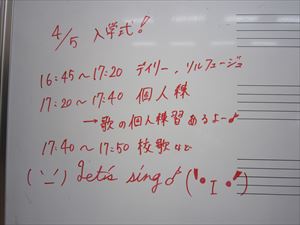 4/5 入学式!
16:45〜17:20 デイリー、ソルフェージュ
17:20〜17:40 個人練
→歌の個人練習あるよー♪
17:40〜17:50 校歌など
(˙-˙) Let's sing♪ ( •̀ I •́ )